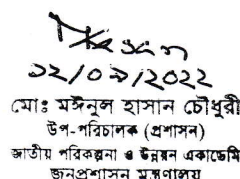 ১২/০৯/2022
মোঃ মঈনুল হাসান চৌধুরী
উপ-পরিচালক (প্রশাসন)
জাতীয় পরিকল্পনা ও উন্নয়ন একাডেমি
জনপ্রশাসন মন্ত্রণালয়